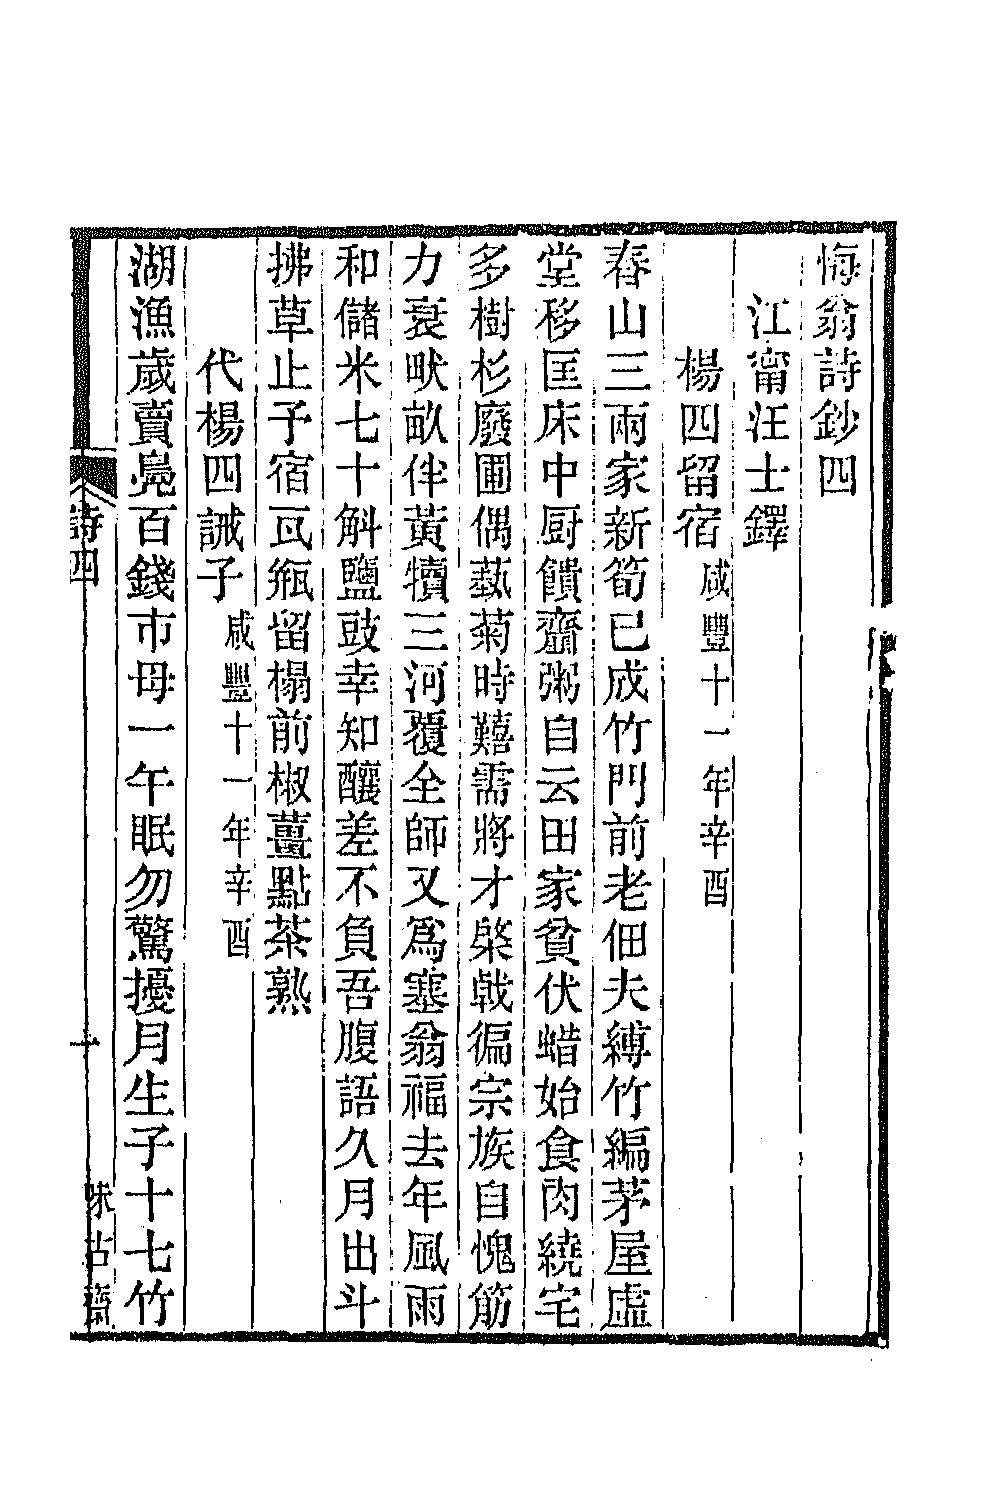 悔翁詩鈔四
江甯汪士鐸
楊四留宿咸豐十一年辛酉
春山三兩家新筍已成竹門前老佃夫縛竹編茅屋虛
堂移匡床中厨饋齏粥自云田家貧伏蜡始食肉繞宅
多樹杉廢圃偶蓺菊時囏需將才棨戟徧宗族自愧筋
力衰畎畝伴黃犢三河覆全師又爲塞翁福去年風雨
和儲米七十斛鹽豉幸知釀差不負吾腹語久月出斗
拂草止予宿瓦瓶留榻前椒薑點茶熟
代楊四誡子咸豐十一年辛酉
湖漁歲賣鳧百錢市母一午眠勿驚擾月生子十七竹
詩四
一
味古齋